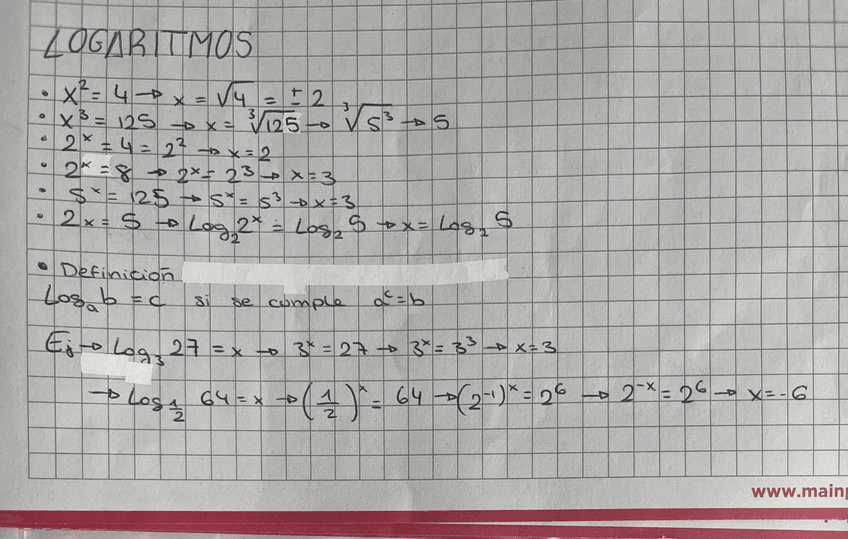 LOGARITMOS
• x² = 4 → x = √4 = ± 2
• x³ = 125 → x = ∛125 → ∛5³ → 5
• 2ˣ = 4 = 2² → x = 2
• 2ˣ = 8 → 2ˣ = 2³ → x = 3
• 5ˣ = 125 → 5ˣ = 5³ → x = 3
• 2x = 5 → Log₂ 2ˣ = Log₂ 5 → x = Log₂ 5
• Definición
Logₐ b = c si se cumple aᶜ = b
Ej → Log₃ 27 = x → 3ˣ = 27 → 3ˣ = 3³ → x = 3
→ Log_{1/2} 64 = x → (1/2)ˣ = 64 → (2⁻¹)ˣ = 2⁶ → 2⁻ˣ = 2⁶ → x = -6
www.mainp